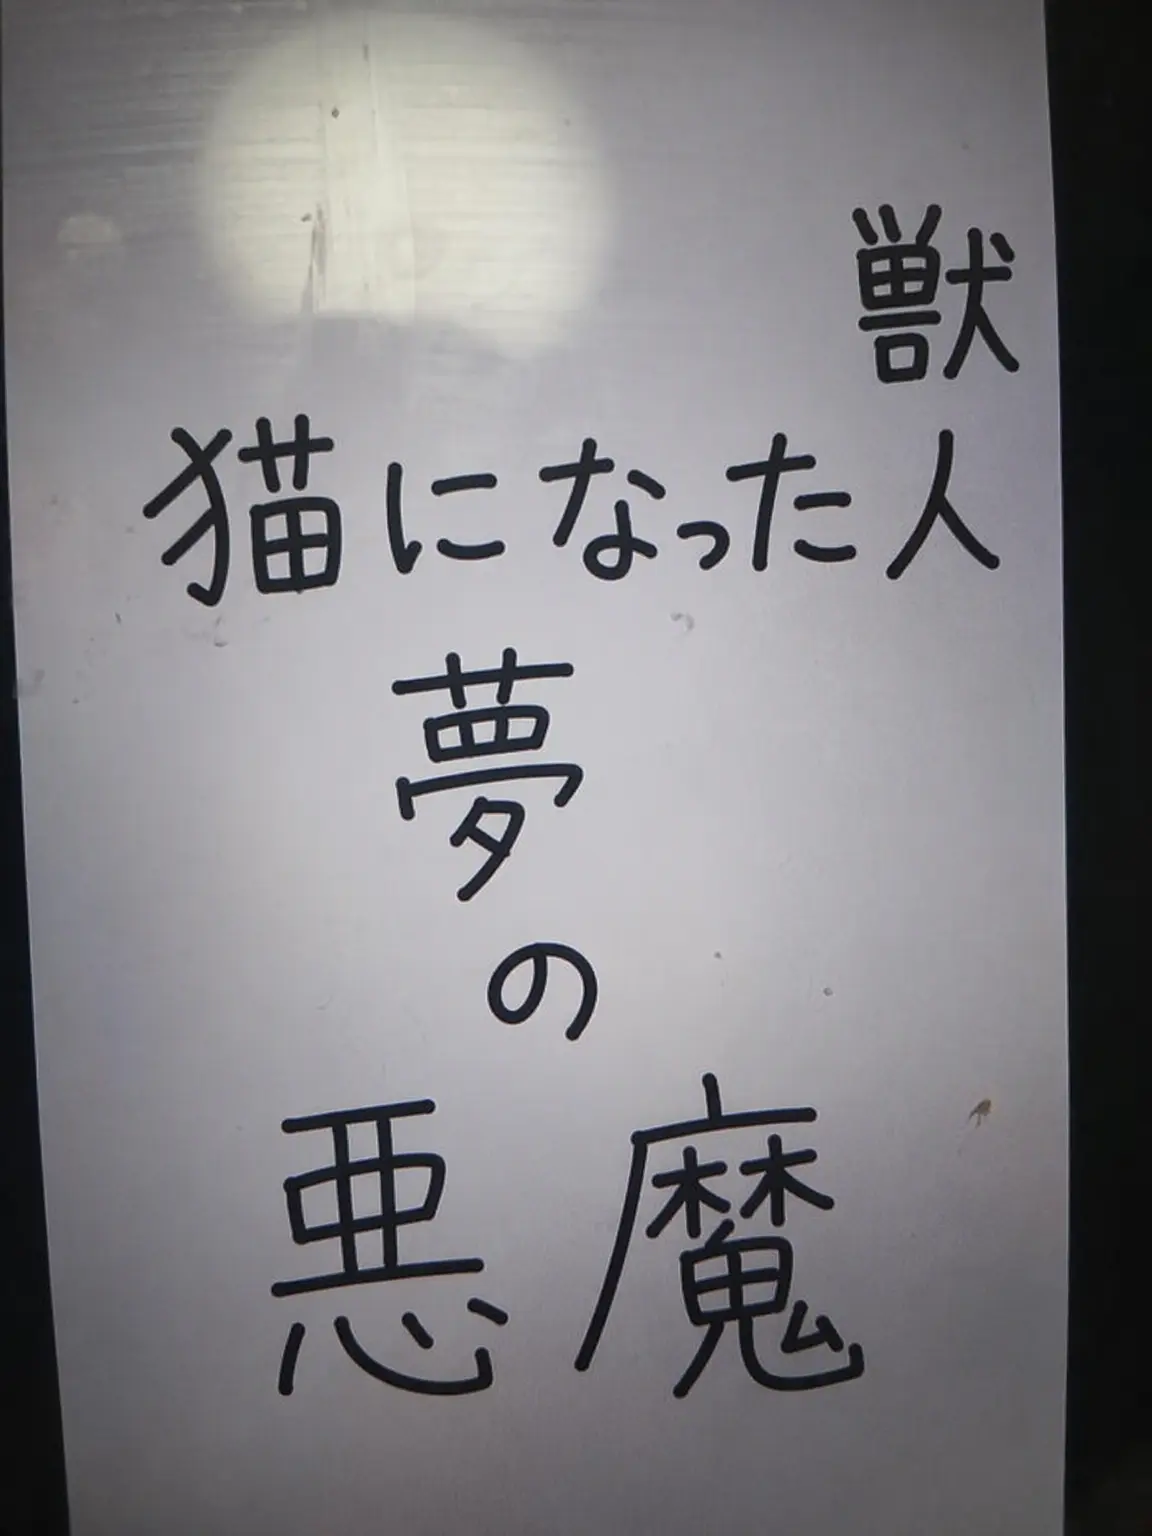 獣
猫になった人
夢
の
悪魔